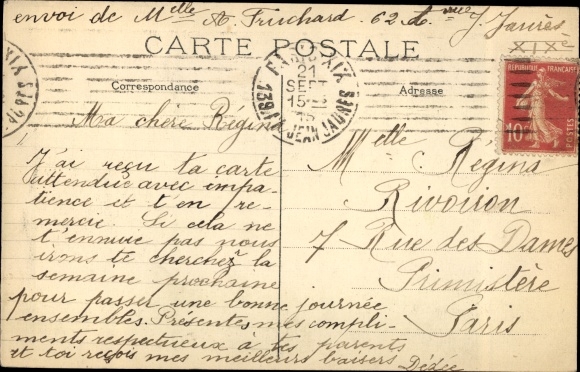 envoi de Mlle A. Fruchard. 62 A. rue J. Jaurès
XIXe
CARTE POSTALE
Correspondance
Adresse
PARIS XIX
21
SEPT
15
139 R. JEAN JAURES
RÉPUBLIQUE FRANÇAISE
10
POSTES
Ma chère Régina
J'ai reçu ta carte
attendue avec impa-
tience et t'en re-
mercie. Si cela ne
t'ennuie pas nous
irons te cherchez la
semaine prochaine
pour passer une bonne journée
ensembles. Présentes mes compli-
ments respectueux à tes parents
et toi reçois mes meilleurs baisers
Dédée
Mlle Régina
Rivouon
7 Rue des Dames
Primistère
Paris